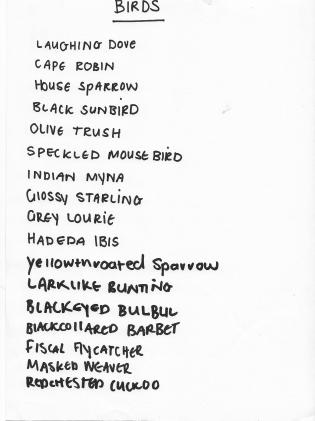 BIRDS
LAUGHING DOVE
CAPE ROBIN
HOUSE SPARROW
BLACK SUNBIRD
OLIVE TRUSH
SPECKLED MOUSEBIRD
INDIAN MYNA
GLOSSY STARLING
GREY LOURIE
HADEDA IBIS
Yellowthroated Sparrow
LARKLIKE BUNTING
BLACKEYED BULBUL
BLACKCOLLARED BARBET
FISCAL FLYCATCHER
MASKED WEAVER
REDCHESTED CUCKOO